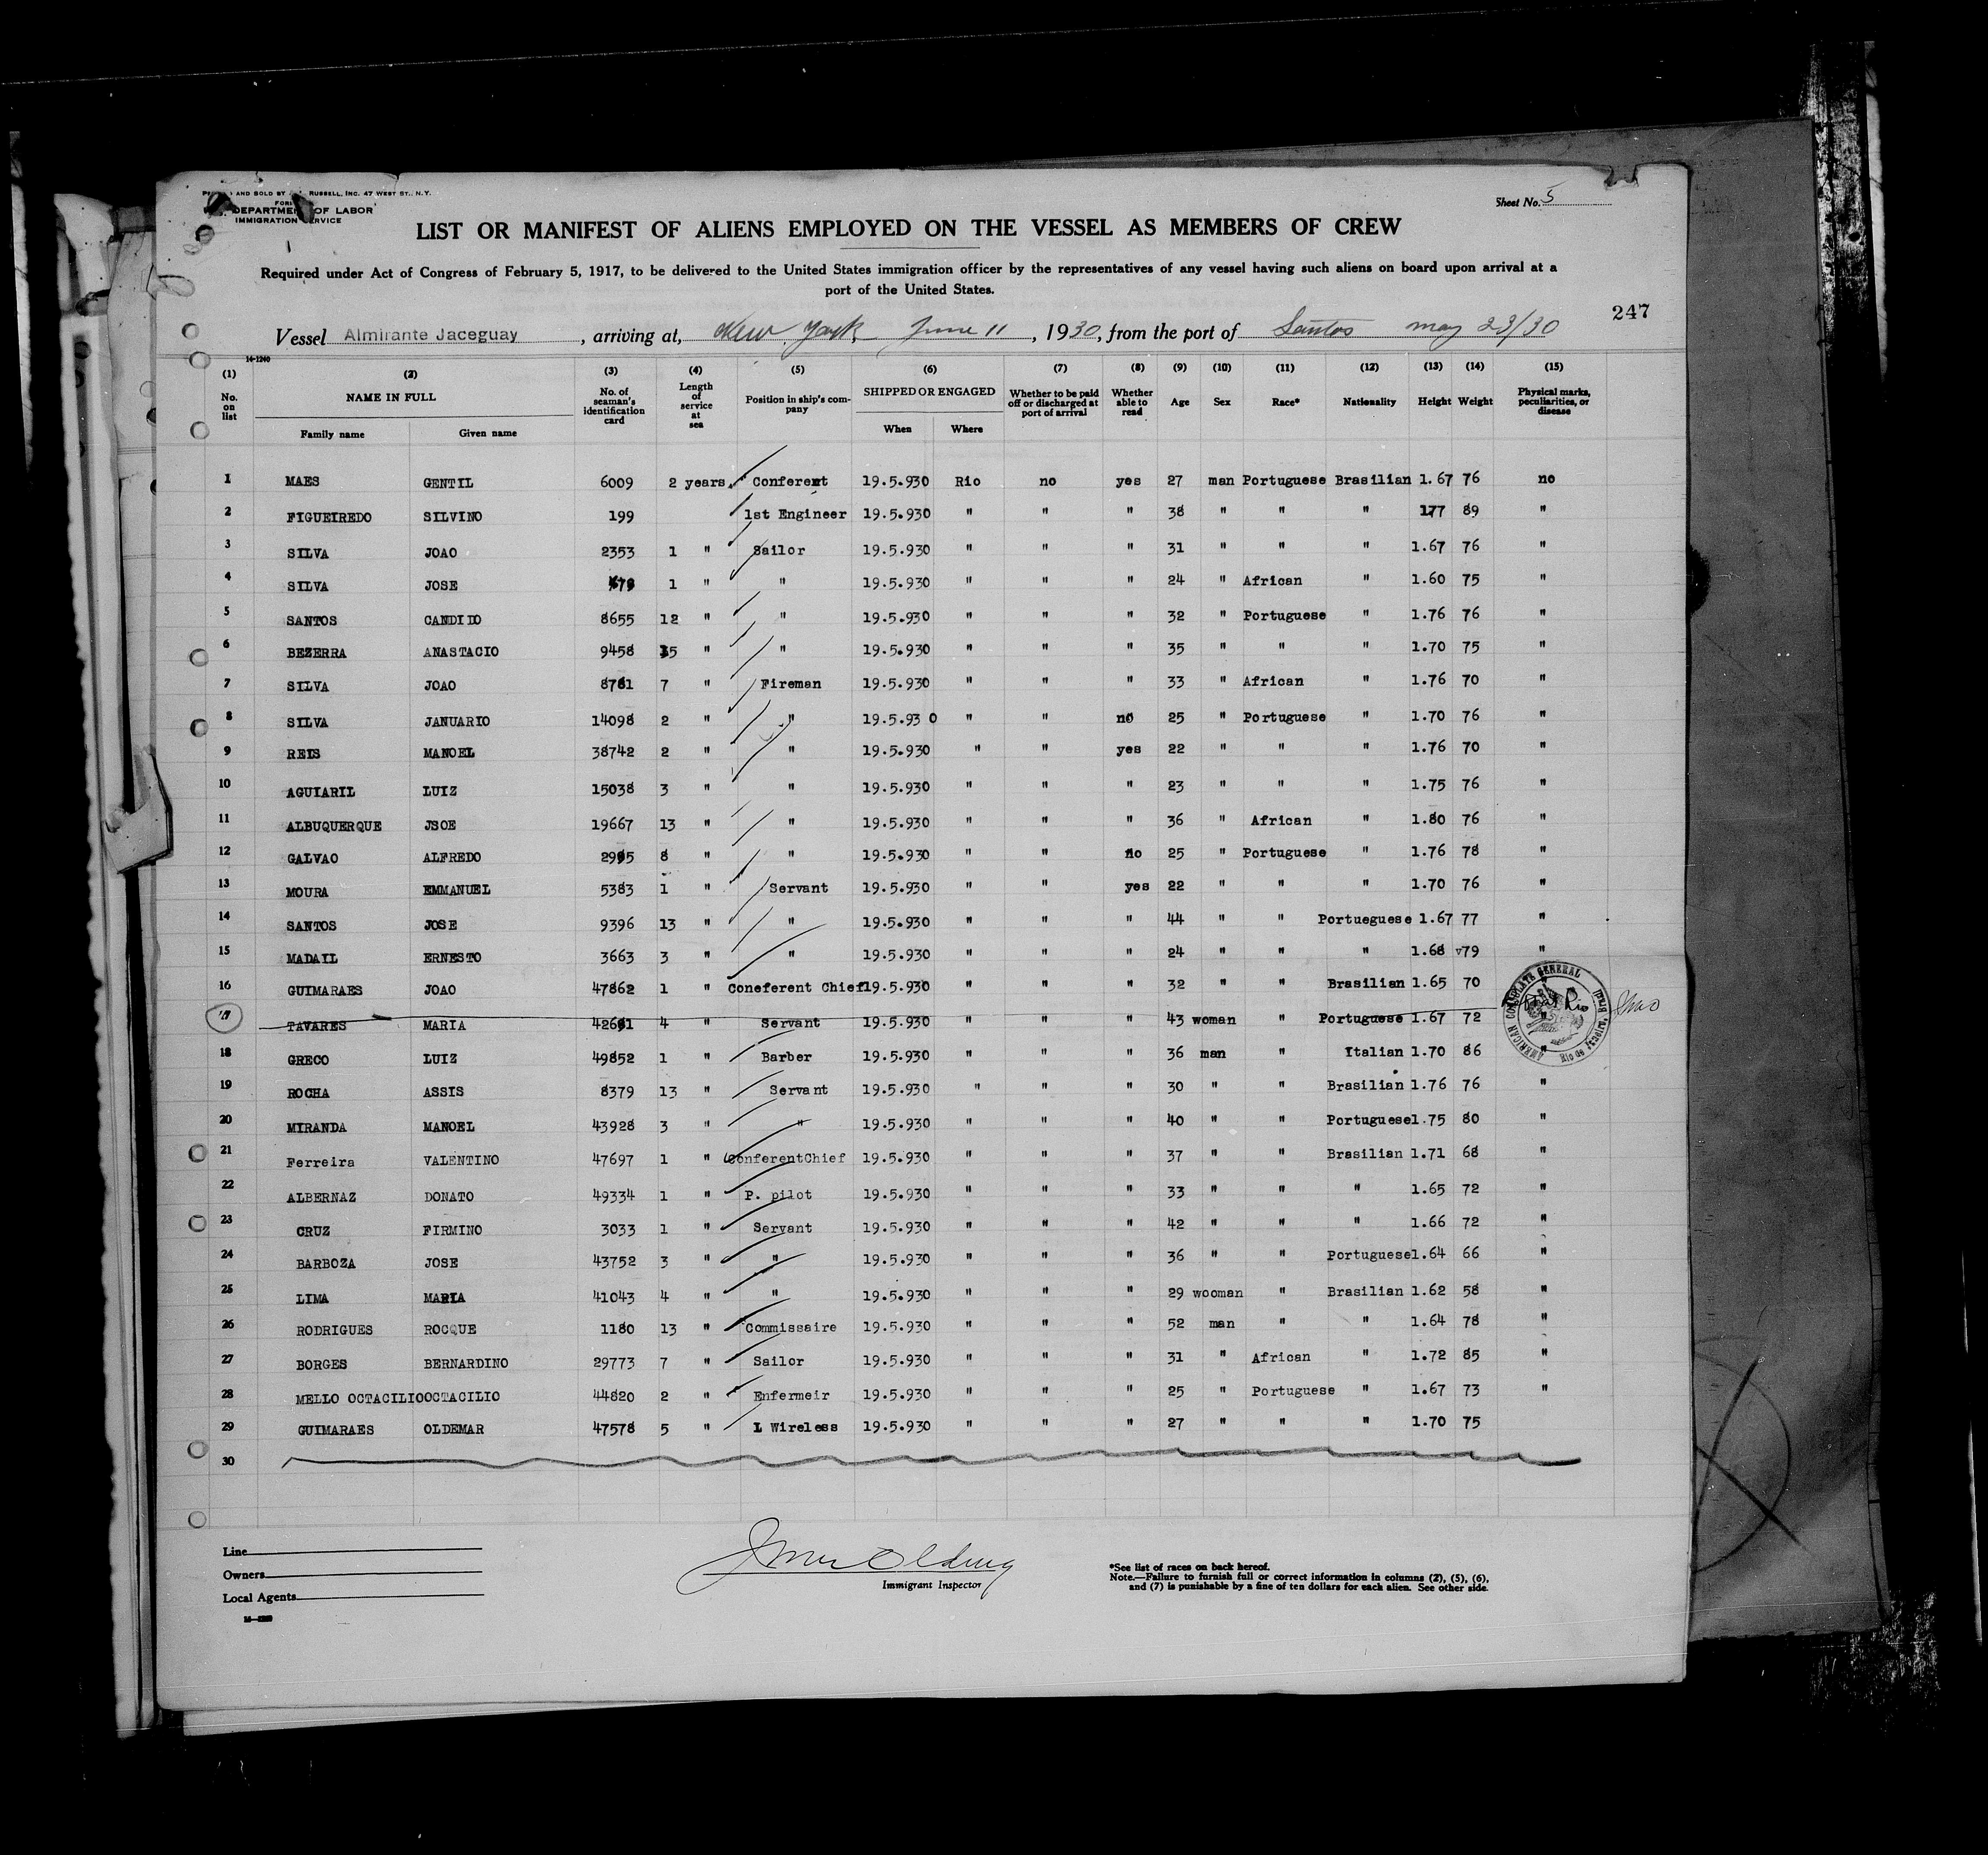 AND SOLD BY RUSSELL, INC. 47 WEST ST., N.Y.
DEPARTMENT OF LABOR
IMMIGRATION SERVICE
Sheet No. 5
LIST OR MANIFEST OF ALIENS EMPLOYED ON THE VESSEL AS MEMBERS OF CREW
Required under Act of Congress of February 5, 1917, to be delivered to the United States immigration officer by the representatives of any vessel having such aliens on board upon arrival at a
port of the United States.
247
Vessel Almirante Jaceguay, arriving at, New York, June 11, 1930, from the port of Santos may 23/30
14-1240
(1) (2) (3) (4) (5) (6) (7) (8) (9) (10) (11) (12) (13) (14) (15)
No. on list NAME IN FULL No. of seaman's identification card Length of service at sea Position in ship's company SHIPPED OR ENGAGED Whether to be paid off or discharged at port of arrival Whether able to read Age Sex Race* Nationality Height Weight Physical marks, peculiarities, or disease
Family name Given name When Where
1 MAES GENTIL 6009 2 years. Conferent 19.5.930 Rio no yes 27 man Portuguese Brasilian 1.67 76 no
2 FIGUEIREDO SILVINO 199 1st Engineer 19.5.930 " " " 38 " " " 177 89 "
3 SILVA JOAO 2353 1 " Sailor 19.5.930 " " " 31 " " " 1.67 76 "
4 SILVA JOSE 1 " " 19.5.930 " " " 24 " African " 1.60 75 "
5 SANTOS CANDIDO 8655 12 " " 19.5.930 " " " 32 " Portuguese " 1.76 76 "
6 BEZERRA ANASTACIO 9458 15 " " 19.5.930 " " " 35 " " " 1.70 75 "
7 SILVA JOAO 8781 7 " Fireman 19.5.930 " " " 33 " African " 1.76 70 "
8 SILVA JANUARIO 14098 2 " " 19.5.93 0 " " no 25 " Portuguese " 1.70 76 "
9 REIS MANOEL 38742 2 " " 19.5.930 " " yes 22 " " " 1.76 70 "
10 AGUIARIL LUIZ 15038 3 " " 19.5.930 " " " 23 " " " 1.75 76 "
11 ALBUQUERQUE JSOE 19667 13 " " 19.5.930 " " " 36 " African " 1.80 76 "
12 GALVAO ALFREDO 2995 8 " " 19.5.930 " " no 25 " Portuguese " 1.76 78 "
13 MOURA EMMANUEL 5383 1 " Servant 19.5.930 " " yes 22 " " " 1.70 76 "
14 SANTOS JOSE 9396 13 " " 19.5.930 " " " 44 " " Portueguese 1.67 77 "
15 MADAIL ERNESTO 3663 3 " " 19.5.930 " " " 24 " " " 1.68 79 "
16 GUIMARAES JOAO 47862 1 " Coneferent Chief 19.5.930 " " " 32 " " Brasilian 1.65 70 "
17 TAVARES MARIA 42691 4 " Servant 19.5.930 " " " 43 woman " Portuguese 1.67 72 "
AMERICAN CONSULATE GENERAL Rio de Janeiro, Brazil
18 GRECO LUIZ 49852 1 " Barber 19.5.930 " " " 36 man " Italian 1.70 86 "
19 ROCHA ASSIS 8379 13 " Servant 19.5.930 " " " 30 " " Brasilian 1.76 76 "
20 MIRANDA MANOEL 43928 3 " " 19.5.930 " " " 40 " " Portuguese 1.75 80 "
21 Ferreira VALENTINO 47697 1 " ConferentChief 19.5.930 " " " 37 " " Brasilian 1.71 68 "
22 ALBERNAZ DONATO 49334 1 " P. pilot 19.5.930 " " " 33 " " " 1.65 72 "
23 CRUZ FIRMINO 3033 1 " Servant 19.5.930 " " " 42 " " " 1.66 72 "
24 BARBOZA JOSE 43752 3 " " 19.5.930 " " " 36 " " Portuguese 1.64 66 "
25 LIMA MARIA 41043 4 " " 19.5.930 " " " 29 wooman " Brasilian 1.62 58 "
26 RODRIGUES ROCQUE 1180 13 " Commissaire 19.5.930 " " " 52 man " " 1.64 78 "
27 BORGES BERNARDINO 29773 7 " Sailor 19.5.930 " " " 31 " African " 1.72 85 "
28 MELLO OCTACILIO OCTACILIO 44820 2 " Enfermeir 19.5.930 " " " 25 " Portuguese " 1.67 73 "
29 GUIMARAES OLDEMAR 47578 5 " L Wireless 19.5.930 " " " 27 " " " 1.70 75
30
Line
Owners
Local Agents
Immigrant Inspector
*See list of races on back hereof.
Note.—Failure to furnish full or correct information in columns (2), (5), (6),
and (7) is punishable by a fine of ten dollars for each alien. See other side.